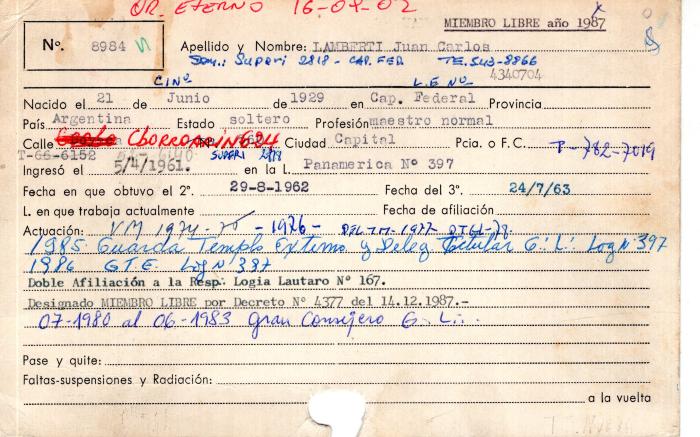 OR. ETERNO 16-09-02
MIEMBRO LIBRE año 1987
Nº. 8984
Apellido y Nombre: LAMBERTI Juan Carlos
Dom.: Superi 2818 - CAP. FED. TE. 543-8866
CI Nº L.E Nº 4340704
Nacido el 21 de Junio de 1929 en Cap. Federal Provincia
País Argentina Estado soltero Profesión maestro normal
Calle CHORROARIN 624 Ciudad Capital Pcia. o F.C. T-782-7019
T-66-6152 SUPERI 2818
Ingresó el 5/4/1961. en la L. Panamerica Nº 397
Fecha en que obtuvo el 2º. 29-8-1962 Fecha del 3º. 24/7/63
L. en que trabaja actualmente Fecha de afiliación
Actuación: VM 1974-75 - 1976 -
1985 Guarda Templo Externo y Deleg Titular G.·. L.·. Log Nº 397
1986 G T E. Log Nº 397
Doble Afiliación a la Resp. Logia Lautaro Nº 167.
Designado MIEMBRO LIBRE por Decreto Nº 4377 del 14.12.1987.-
07-1980 al 06-1983 Gran Consejero G.·. L.·.
Pase y quite:
Faltas-suspensiones y Radiación:
a la vuelta